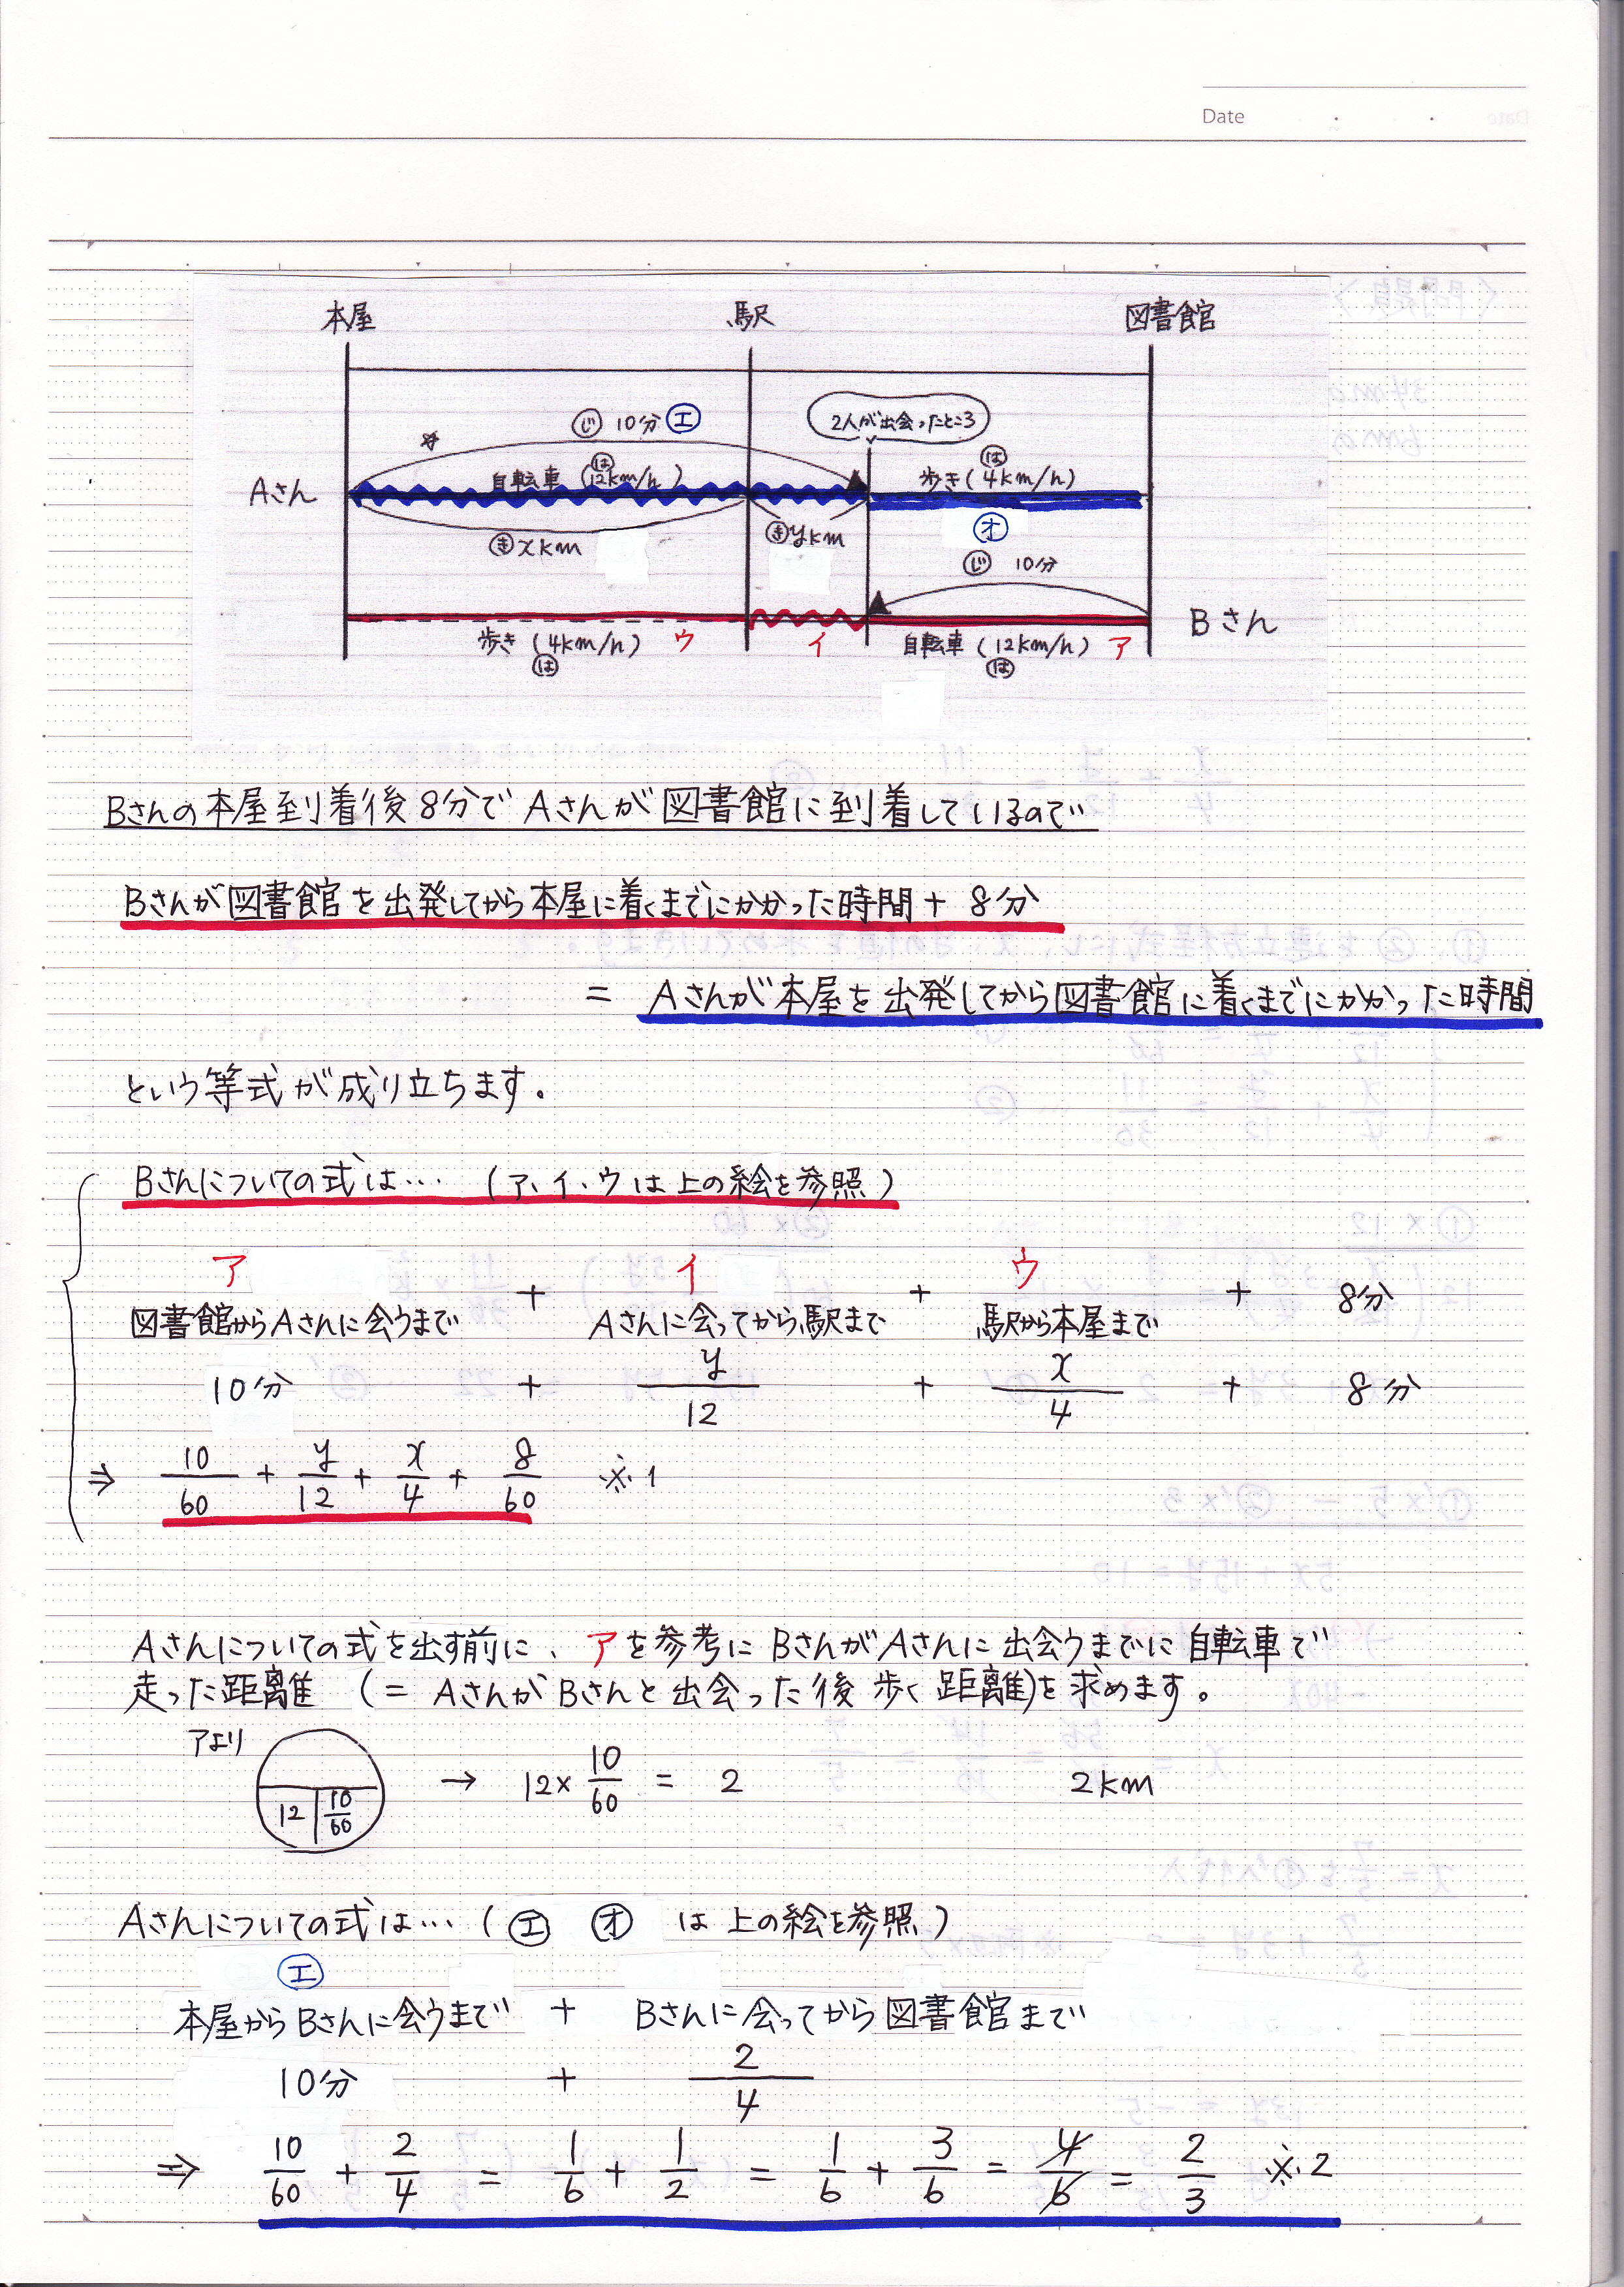 Date
本屋 駅 図書館
じ 10分 エ 2人が出会ったところ
は は
Aさん 自転車 (12km/h) 歩き(4km/h)
き xkm き ykm オ
じ 10分
Bさん
歩き (4km/h) ウ イ 自転車 (12km/h) ア
は は
Bさんの本屋到着後8分でAさんが図書館に到着しているので
Bさんが図書館を出発してから本屋に着くまでにかかった時間+8分
= Aさんが本屋を出発してから図書館に着くまでにかかった時間
という等式が成り立ちます。
Bさんについての式は… (ア、イ、ウは上の絵を参照)
ア イ ウ
図書館からAさんに会うまで + Aさんに会ってから駅まで + 駅から本屋まで + 8分
10分 + y/12 + x/4 + 8分
⇒ 10/60 + y/12 + x/4 + 8/60 ※1
Aさんについての式を出す前に、アを参考にBさんがAさんに出会うまでに自転車で
走った距離 (= AさんがBさんと出会った後歩く距離)を求めます。
アより
12 10/60 → 12× 10/60 = 2 2km
Aさんについての式は…(エ オ は上の絵を参照)
エ
本屋からBさんに会うまで + Bさんに会ってから図書館まで
10分 + 2/4
⇒ 10/60 + 2/4 = 1/6 + 1/2 = 1/6 + 3/6 = 4/6 = 2/3 ※2